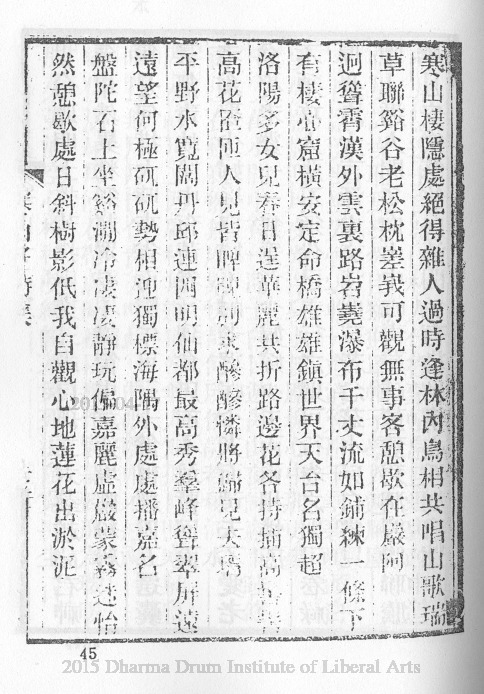 寒山棲隱處絕得雜人過時逢林內鳥相共唱山歌瑞
草聯谿谷老松枕嵳峩可觀無事客憩歇在巖阿
迥聳霄漢外雲裏路岧嶤瀑布千丈流如鋪練一條下
有棲心窟橫安定命橋雄雄鎮世界天台名獨超
洛陽多女兒春日逞華麗共折路邊花各持插高
高花 人見皆睥 別求 憐將歸見夫壻
平野水寬闊丹邱連四明仙都最高秀羣峰聳翠屏遠
遠望何極矹矹勢相迎獨標海隅外處處播嘉名
盤陀石上坐谿澗冷淒淒靜玩偏嘉麗虛巖蒙霧迷怡
然憩歇處日斜樹影低我自觀心地蓮花出淤泥
45
2015 Dharma Drum Institute of Liberal Arts